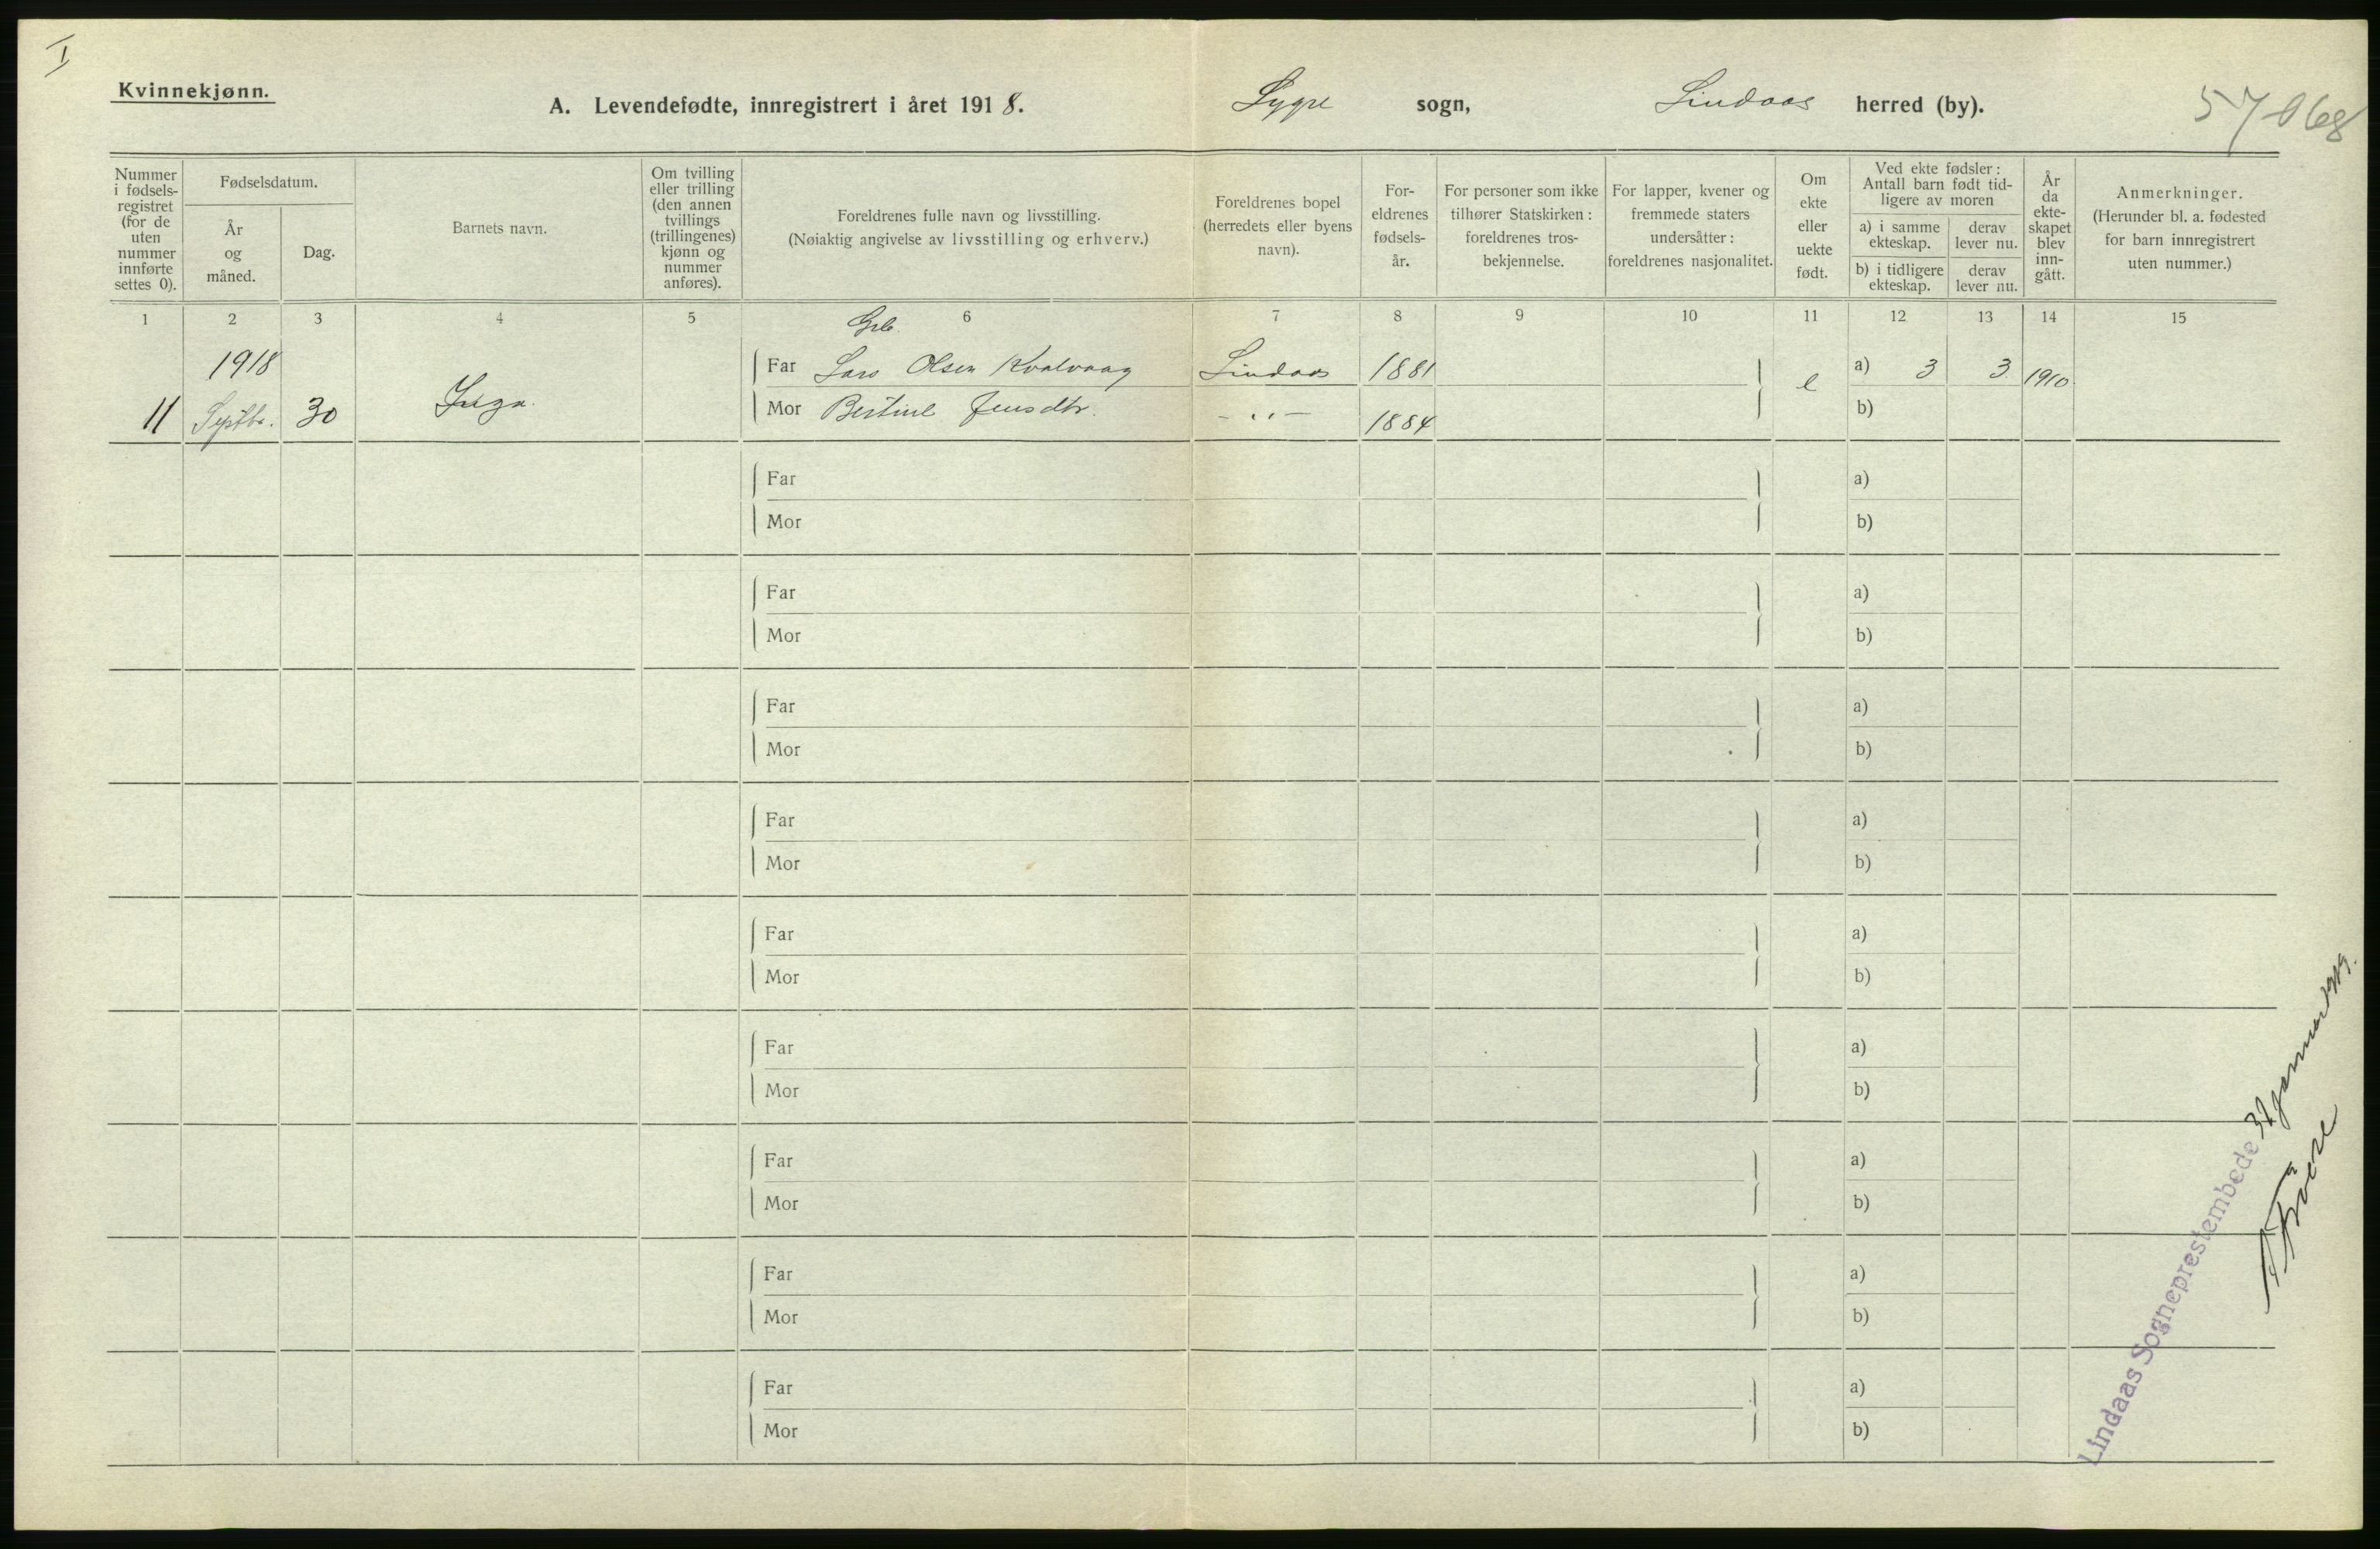 I
Kvinnekjønn.
A. Levendefødte, innregistrert i året 1918.
Lygre sogn, Lindaas herred (by).
57068
Nummer i fødsels-registret (for de uten nummer innførte settes 0).
Fødselsdatum.
År og måned.
Dag.
Barnets navn.
Om tvilling eller trilling (den annen tvillings (trillingenes) kjønn og nummer anføres).
Foreldrenes fulle navn og livsstilling.
(Nøiaktig angivelse av livsstilling og erhverv.)
Foreldrenes bopel (herredets eller byens navn).
For-eldrenes fødsels-år.
For personer som ikke tilhører Statskirken: foreldrenes tros-bekjennelse.
For lapper, kvener og fremmede staters undersåtter: foreldrenes nasjonalitet.
Om ekte eller uekte født.
Ved ekte fødsler: Antall barn født tid-ligere av moren
a) i samme ekteskap.
derav lever nu.
b) i tidligere ekteskap.
derav lever nu.
År da ekte-skapet blev inn-gått.
Anmerkninger.
(Herunder bl. a. fødested for barn innregistrert uten nummer.)
1 2 3 4 5 6 7 8 9 10 11 12 13 14 15
Grb.
1918 Far Lars Olsen Kvalvaag Lindaas 1881 e a) 3 3 1910
11 Septbr. 30 Inga. Mor Bertine Jensdtr. - " - 1884 b)
Far a)
Mor b)
Far a)
Mor b)
Far a)
Mor b)
Far a)
Mor b)
Far a)
Mor b)
Far a)
Mor b)
Far a)
Mor b)
Far a)
Mor b)
Far a)
Mor b)
Lindaas Sogneprestembede 31 januar 1919.